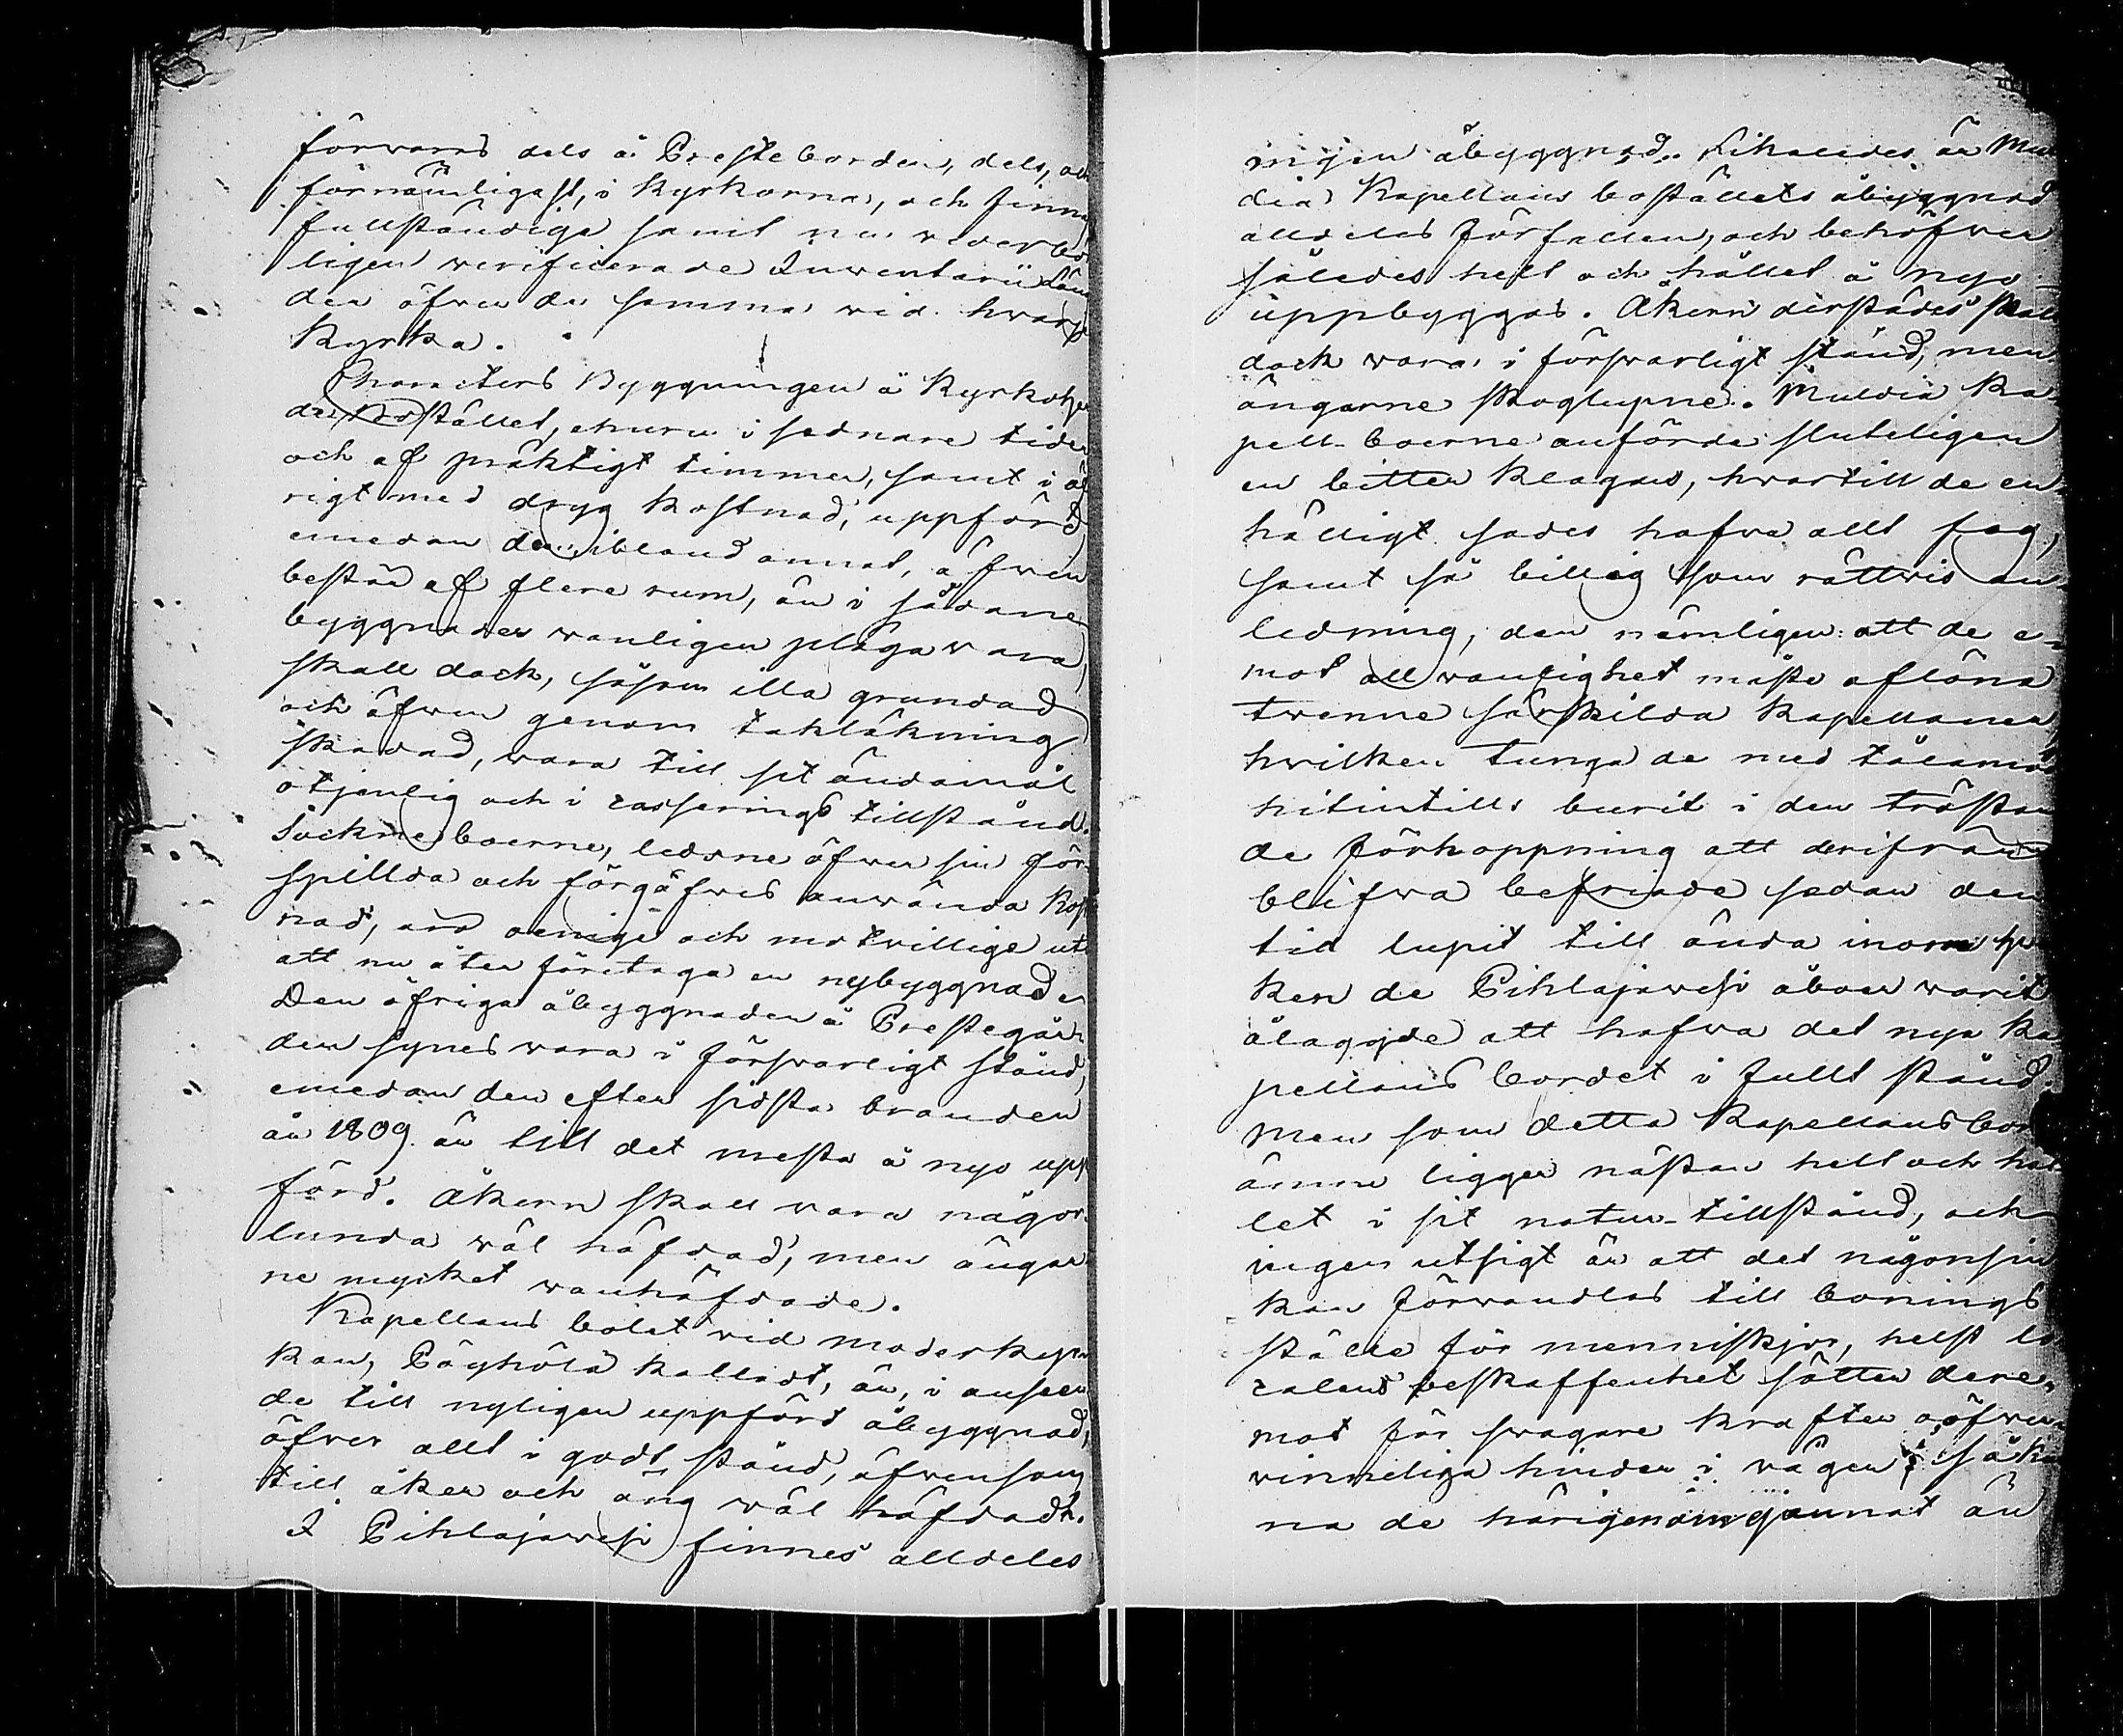 förvaras dels å Prestebordens, dels, och
förnämligast, i Kyrkorna, och finnas
fullständiga samt nu vederbör-
ligen verificerade Inventarii Län-
der öfver de samma vid hvarje
Kyrka.
Characters Byggningen å Kyrkoher-
de Bostället, ehuru i sednare tider
och af präktigt timmer, samt i öf-
rigt med dryg kostnad, uppförd,
emedan den ibland annat, äfven
består af flere rum, än i sådane
byggnader vanligen pläga vara,
skall dock, såsom illa grundad
och äfven genom takläkning
skadad, vara till sit ändamål
otjenlig och i casserings tillstånd.
Sockneboerne, ledsne öfver sin för-
spillda och förgäfves använda kost-
nad, äro oenige och motvillige uti
att nu åter företaga en nybyggnad.
Den öfriga åbyggnaden å Prestegår-
den synes vara i försvarligt stånd,
emedan den efter sidsta branden
år 1809 är till det mesta å nyo upp-
förd. Åkern skall vara någor-
lunda wäl häfdad, men ängar-
ne mycket vanhäfdade.
Kapellans bolet vid moderkyr-
kan, Pöyhölä kalladt, är, i anseen-
de till nyligen uppförd åbyggnad,
öfver allt i godt stånd, äfvensom
till åker och äng wäl häfdadt.
I Pihlajavesi finnes alldeles
ingen åbyggnad. Likaledes är Mul-
dia Kapellans boställets åbyggnad
alldeles förfallen, och behöfver
således helt och hållet å nyo
uppbyggas. Åkern derstädes skall
dock vara i försvarligt stånd, men
ängarne skoglupne. Muldia Ka-
pell-boerne anförde sluteligen
en bitter klagan, hvartill de en-
hälligt sades hafva allt fog,
samt så billig som rättvis an-
ledning, den nämligen: att de e-
mot all vanlighet måste aflöna
twenne särskilda Kapellaner,
hvilken tunga de med tålamod
hitintills burit i den trösten-
de förhoppning att derifrån
blifva befriade sedan den
tid lupit till ända inom hvil-
ken de Pihlajavesi åboer varit
ålaggde att hafva det nya Ka-
pellans bordet i fullt stånd.
Men som detta Kapellans bords
ämne ligger nästan helt och hål-
let i sit natur-tillstånd, och
ingen utsigt är att det någonsin
kan förvandlas till bonings
ställe för menniskjor, helst lo-
calens beskaffenhet sätter dere-
mot för svagare krafter oöfver-
vinneliga hinder i vägen; så kun-
na de härigenom ej annat än